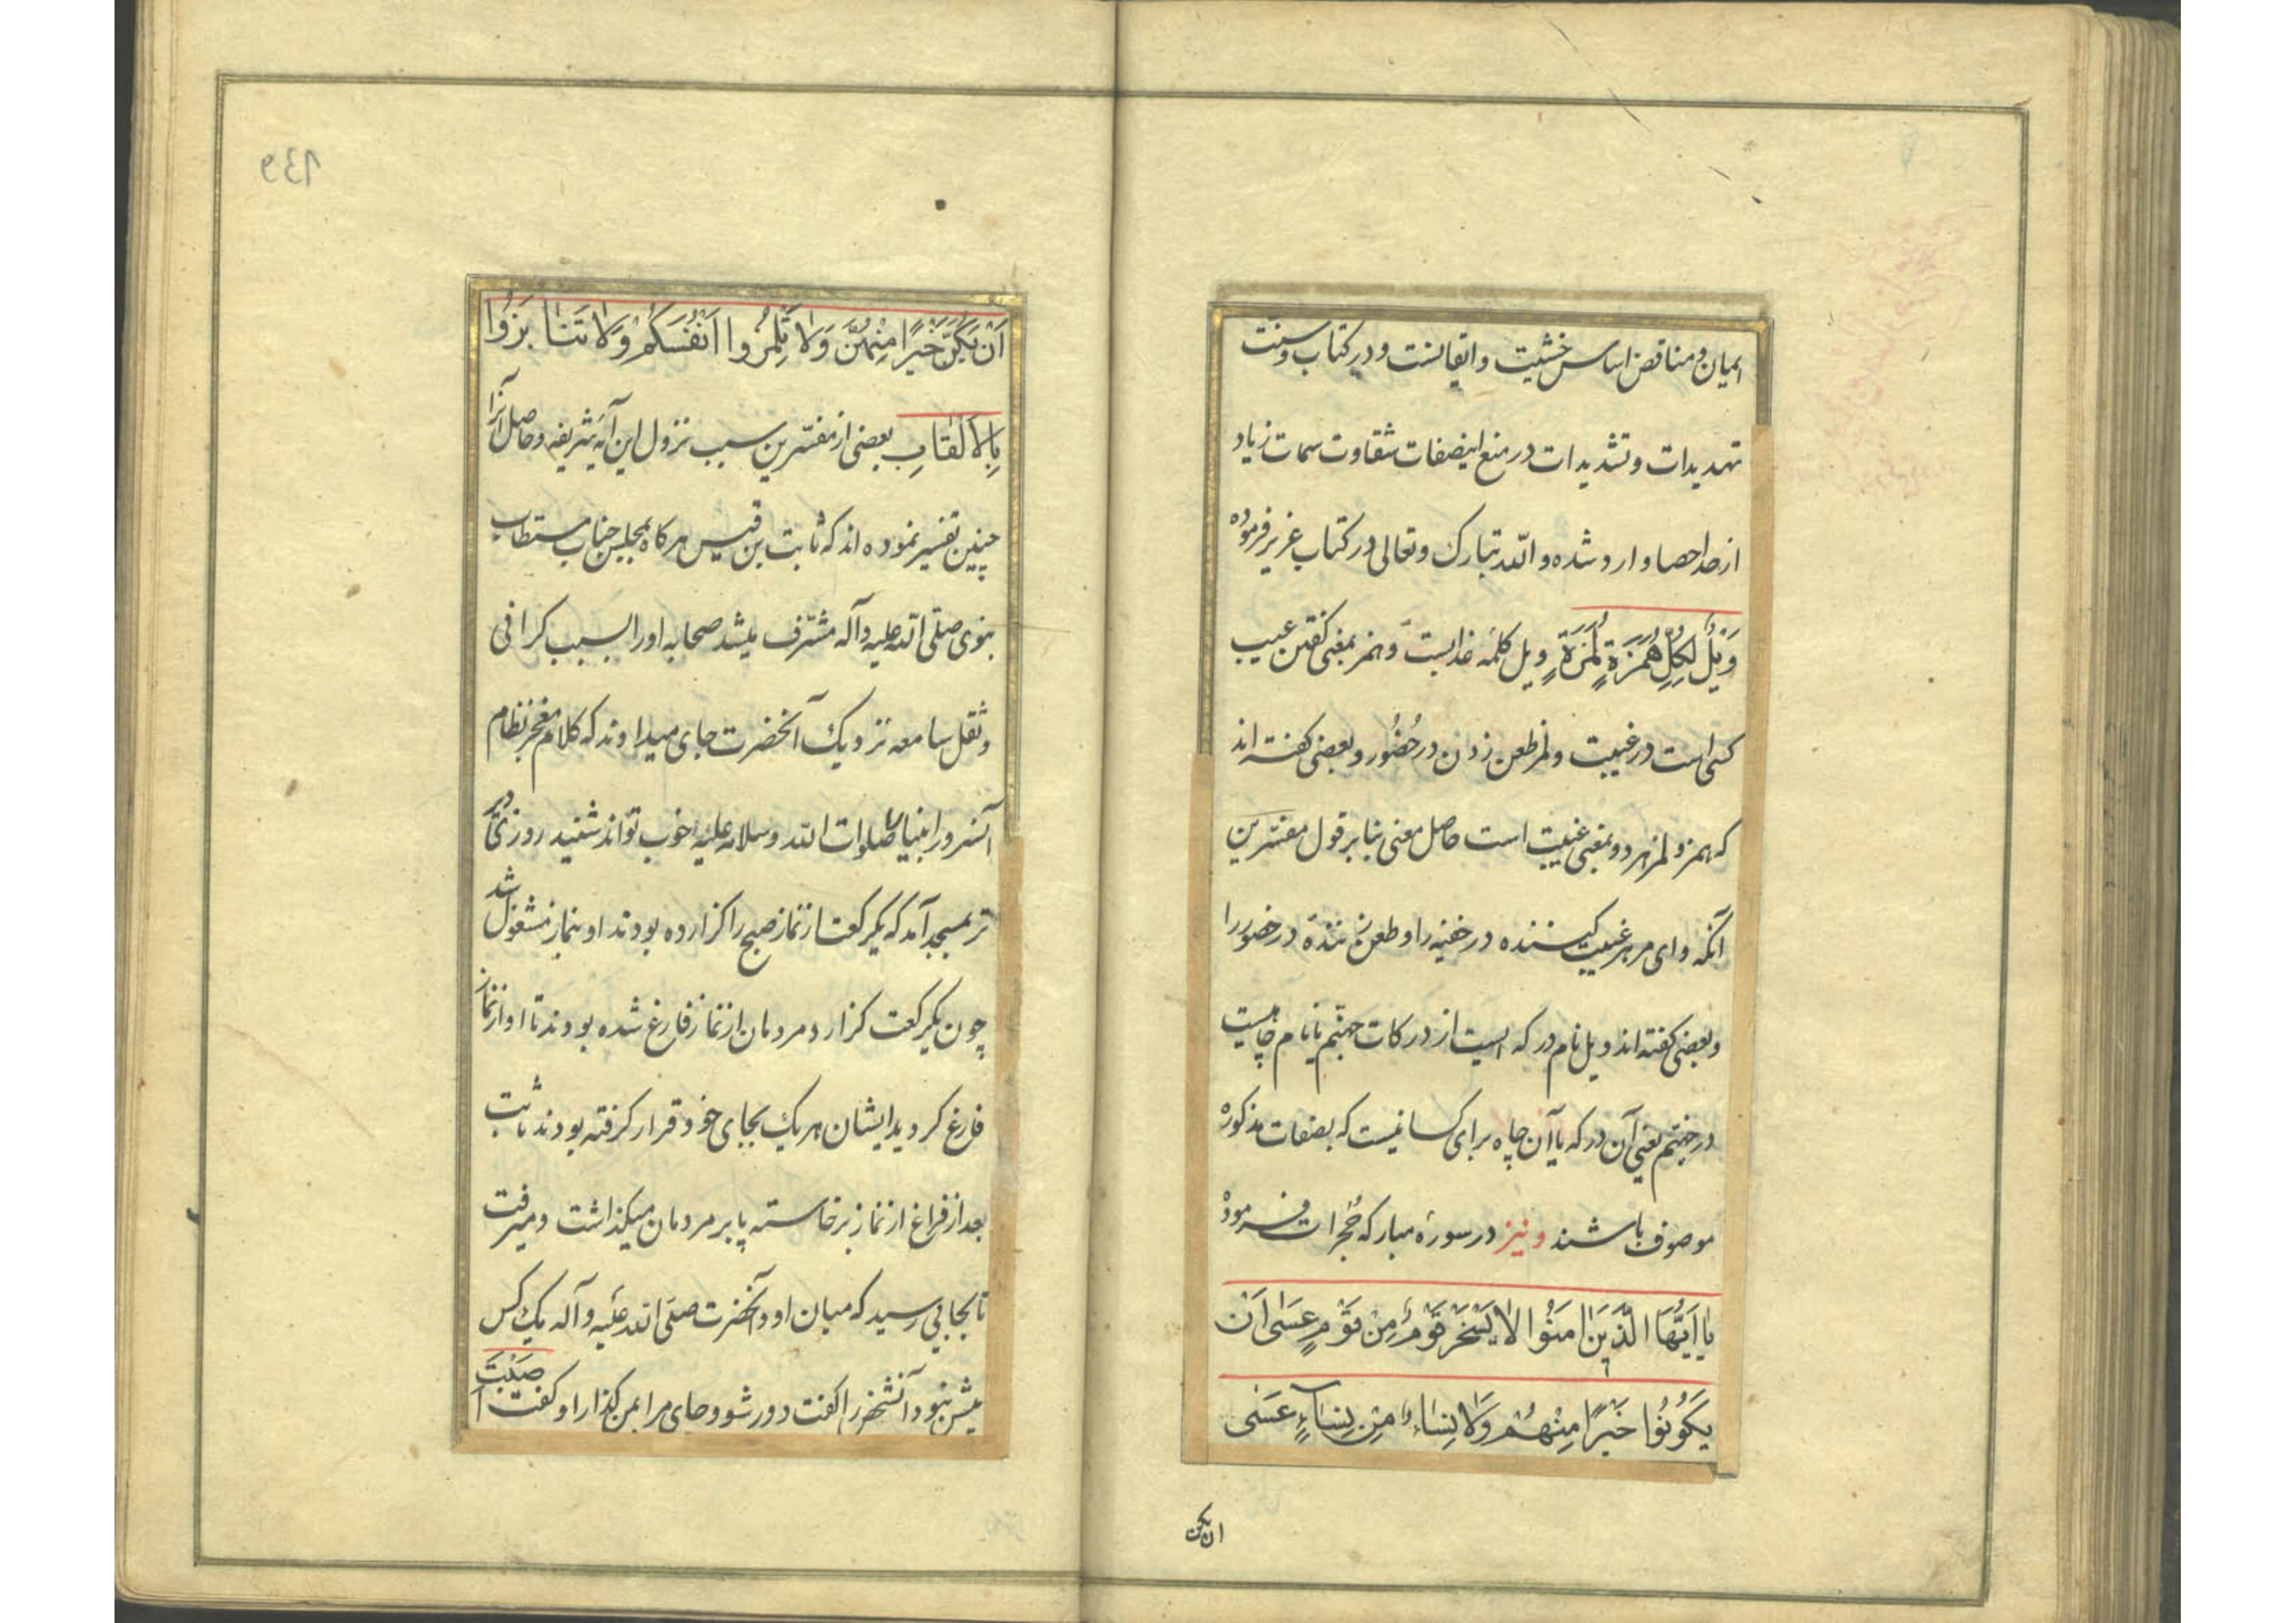 ایمان و مناقض اساس خشیت و اتقانست و در کتاب و سنت
تهدیدات و تشدیدات در منع اینصفات شقاوت سمات زیاد
از حد احصا وارد شده و الله تبارک و تعالی در کتاب عزیز فرموده
وَیْلٌ لِکُلِّ هُمَزَةٍ لُمَزَةٍ ویل کلمه عذابست و همز بمعنی کفتن عیب
کسی است در غیبت و لمز طعن زدن در حُضُور و بعضی کفته اند
که همز و لمز هر دو بمعنی غیبت است حاصل معنی بنا بر قول مفسّرین
آنکه وای مر هر غیبت کننده در خفیه را و طعن زننده در حضور را
و بعضی کفته اند ویل نام درکه ایست از درکات جهنّم یا نام چاهیست
در جهنّم یعنی آن درکه یا آن چاه برای کسانیست که بصفات مذکوره
موصوف باشند و نیز در سورۀ مبارکه حُجرات فرموده
یا اَیُّهَا الَّذینَ امَنُوا لا یَسْخَرْ قَوْمٌ مِنْ قَوْمٍ عَسَی اَنْ
یَکُونُوا خَیْرًا مِنْهُمْ وَلا نِساءٌ مِنْ نِساءٍ عَسَی
ان یکن
139
اَنْ یَکُنَّ خَیْرًا مِنْهُنَّ وَلا تَلْمِزُوا اَنْفُسَکُمْ وَلا تَنا بَزُوا
بِالْاَلْقابِ بعضی از مفسّرین سبب نزول این آیۀ شریفه و حاصل آنرا
چنین تفسیر نموده اند که ثابت بن قیس هر کاه بمجلس جناب مستطاب
نبوی صلّی الله علیه و آله مشرّف میشد صحابه او را بسبب کرانی
و ثقل سامعه نزدیک آنحضرت جای میدادند که کلام معجز نظام
آنسرور انبیا صلوات الله و سلامه علیه را خوب تواند شنید روزی دیر
تر بمسجد آمد که یکرکعت از نماز صبح را کزارده بودند او بنماز مشغول شد
چون یکرکعت کزارد مردمان از نماز فارغ شده بودند تا او از نماز
فارغ کردید ایشان هر یک بجای خود قرار کرفته بودند ثابت
بعد از فراغ از نماز برخاسته پا بر مردمان میکذاشت و میرفت
تا بجایی رسید که میان او و آنحضرت صلّی الله علیه و آله یک کس
بیش نبود آنشخص را کفت دور شو و جای مرا بمن کذار او کفت اَصَبْتَ